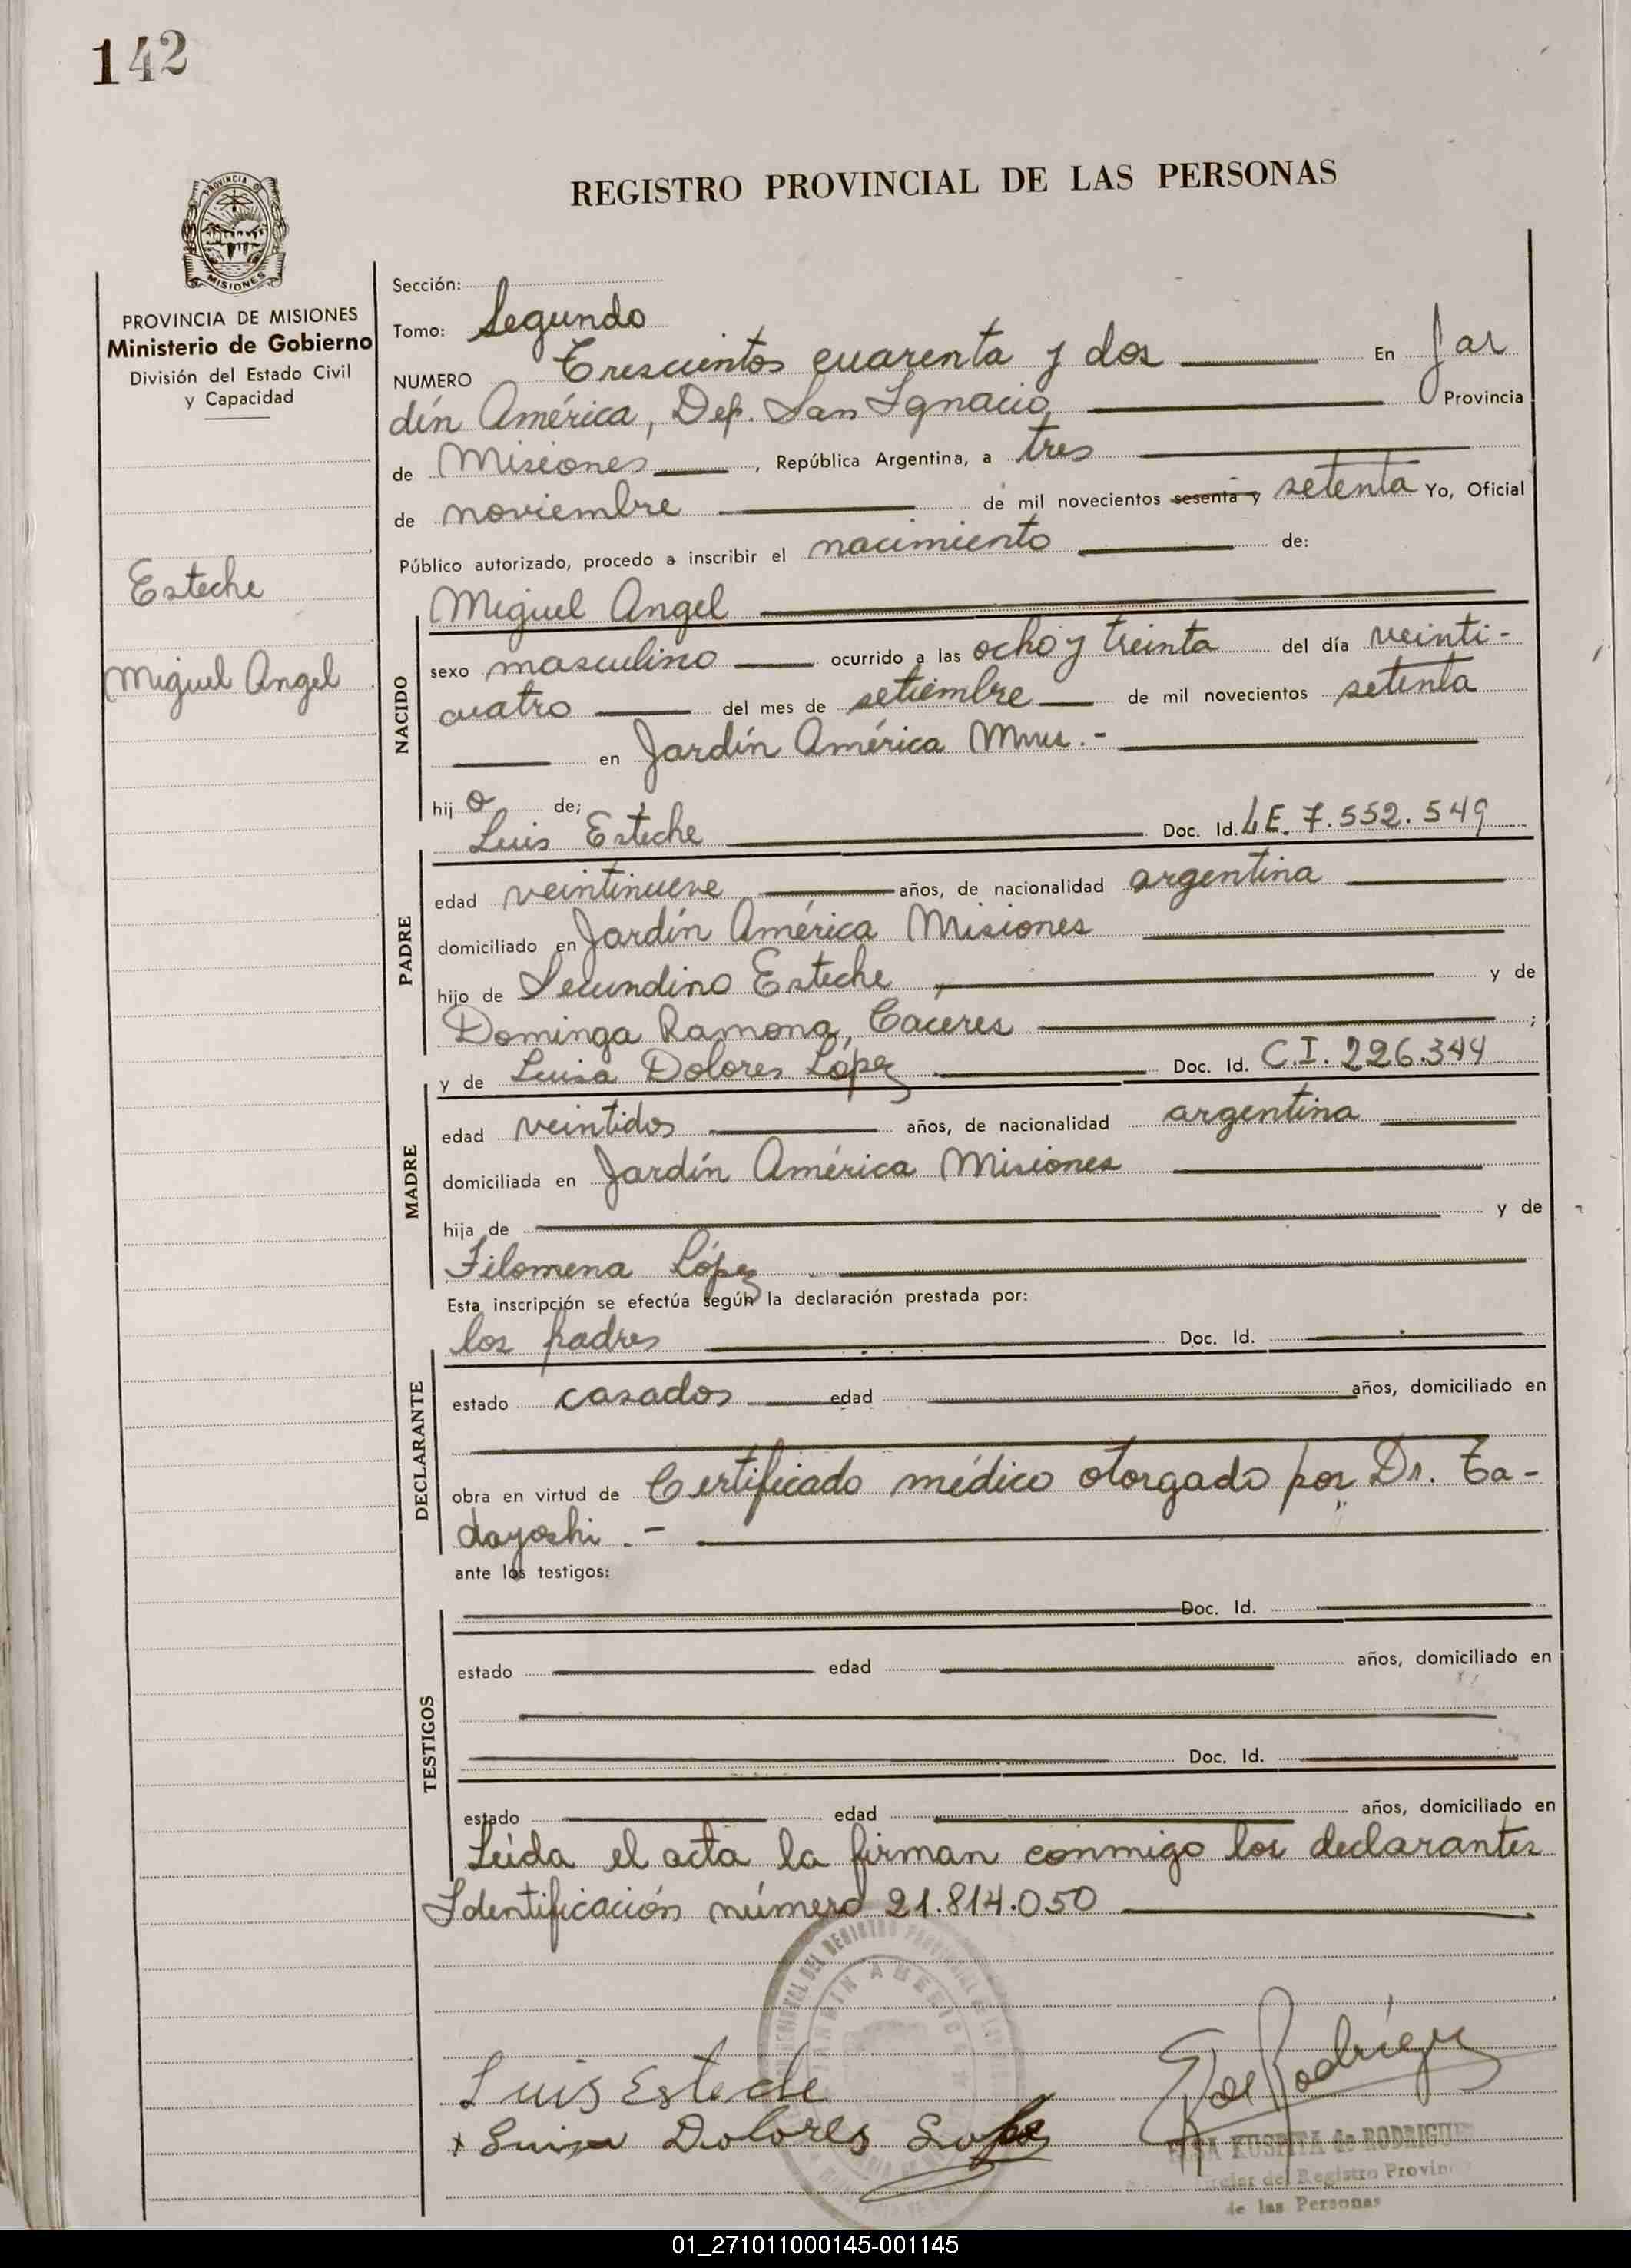 142
REGISTRO PROVINCIAL DE LAS PERSONAS
PROVINCIA DE
MISIONES
PROVINCIA DE MISIONES
Ministerio de Gobierno
División del Estado Civil
y Capacidad
Esteche
Miguel Angel
Sección:
Tomo: Segundo
NUMERO Trescientos cuarenta y dos En Jar
dín América, Dep. San Ignacio, Provincia
de Misiones, República Argentina, a tres
de noviembre de mil novecientos sesenta y setenta Yo, Oficial
Público autorizado, procedo a inscribir el nacimiento de:
Miguel Angel
NACIDO
sexo masculino ocurrido a las ocho y treinta del día veinti-
cuatro del mes de setiembre de mil novecientos setenta
en Jardín América Mnes.-
hijo de;
Luis Esteche Doc. Id. L.E. 7.552.549
PADRE
edad veintinueve años, de nacionalidad argentina
domiciliado en Jardín América Misiones
hijo de Secundino Esteche, y de
Dominga Ramona, Cáceres ;
y de Luisa Dolores López Doc. Id. C.I. 226.344
MADRE
edad veintidos años, de nacionalidad argentina
domiciliada en Jardín América Misiones
hija de y de
Filomena López
Esta inscripción se efectúa según la declaración prestada por:
los padres Doc. Id.
DECLARANTE
estado casados edad años, domiciliado en
obra en virtud de Certificado médico otorgado por Dr. Ta-
dayoshi.-
ante los testigos:
Doc. Id.
TESTIGOS
estado edad años, domiciliado en
Doc. Id.
estado edad años, domiciliado en
Leída el acta la firman conmigo los declarantes
Identificación número 21.814.050
Luis Esteche
x Luisa Dolores Lopez
de RODRIGUEZ
del Registro Provin
de las Personas
01_271011000145-001145